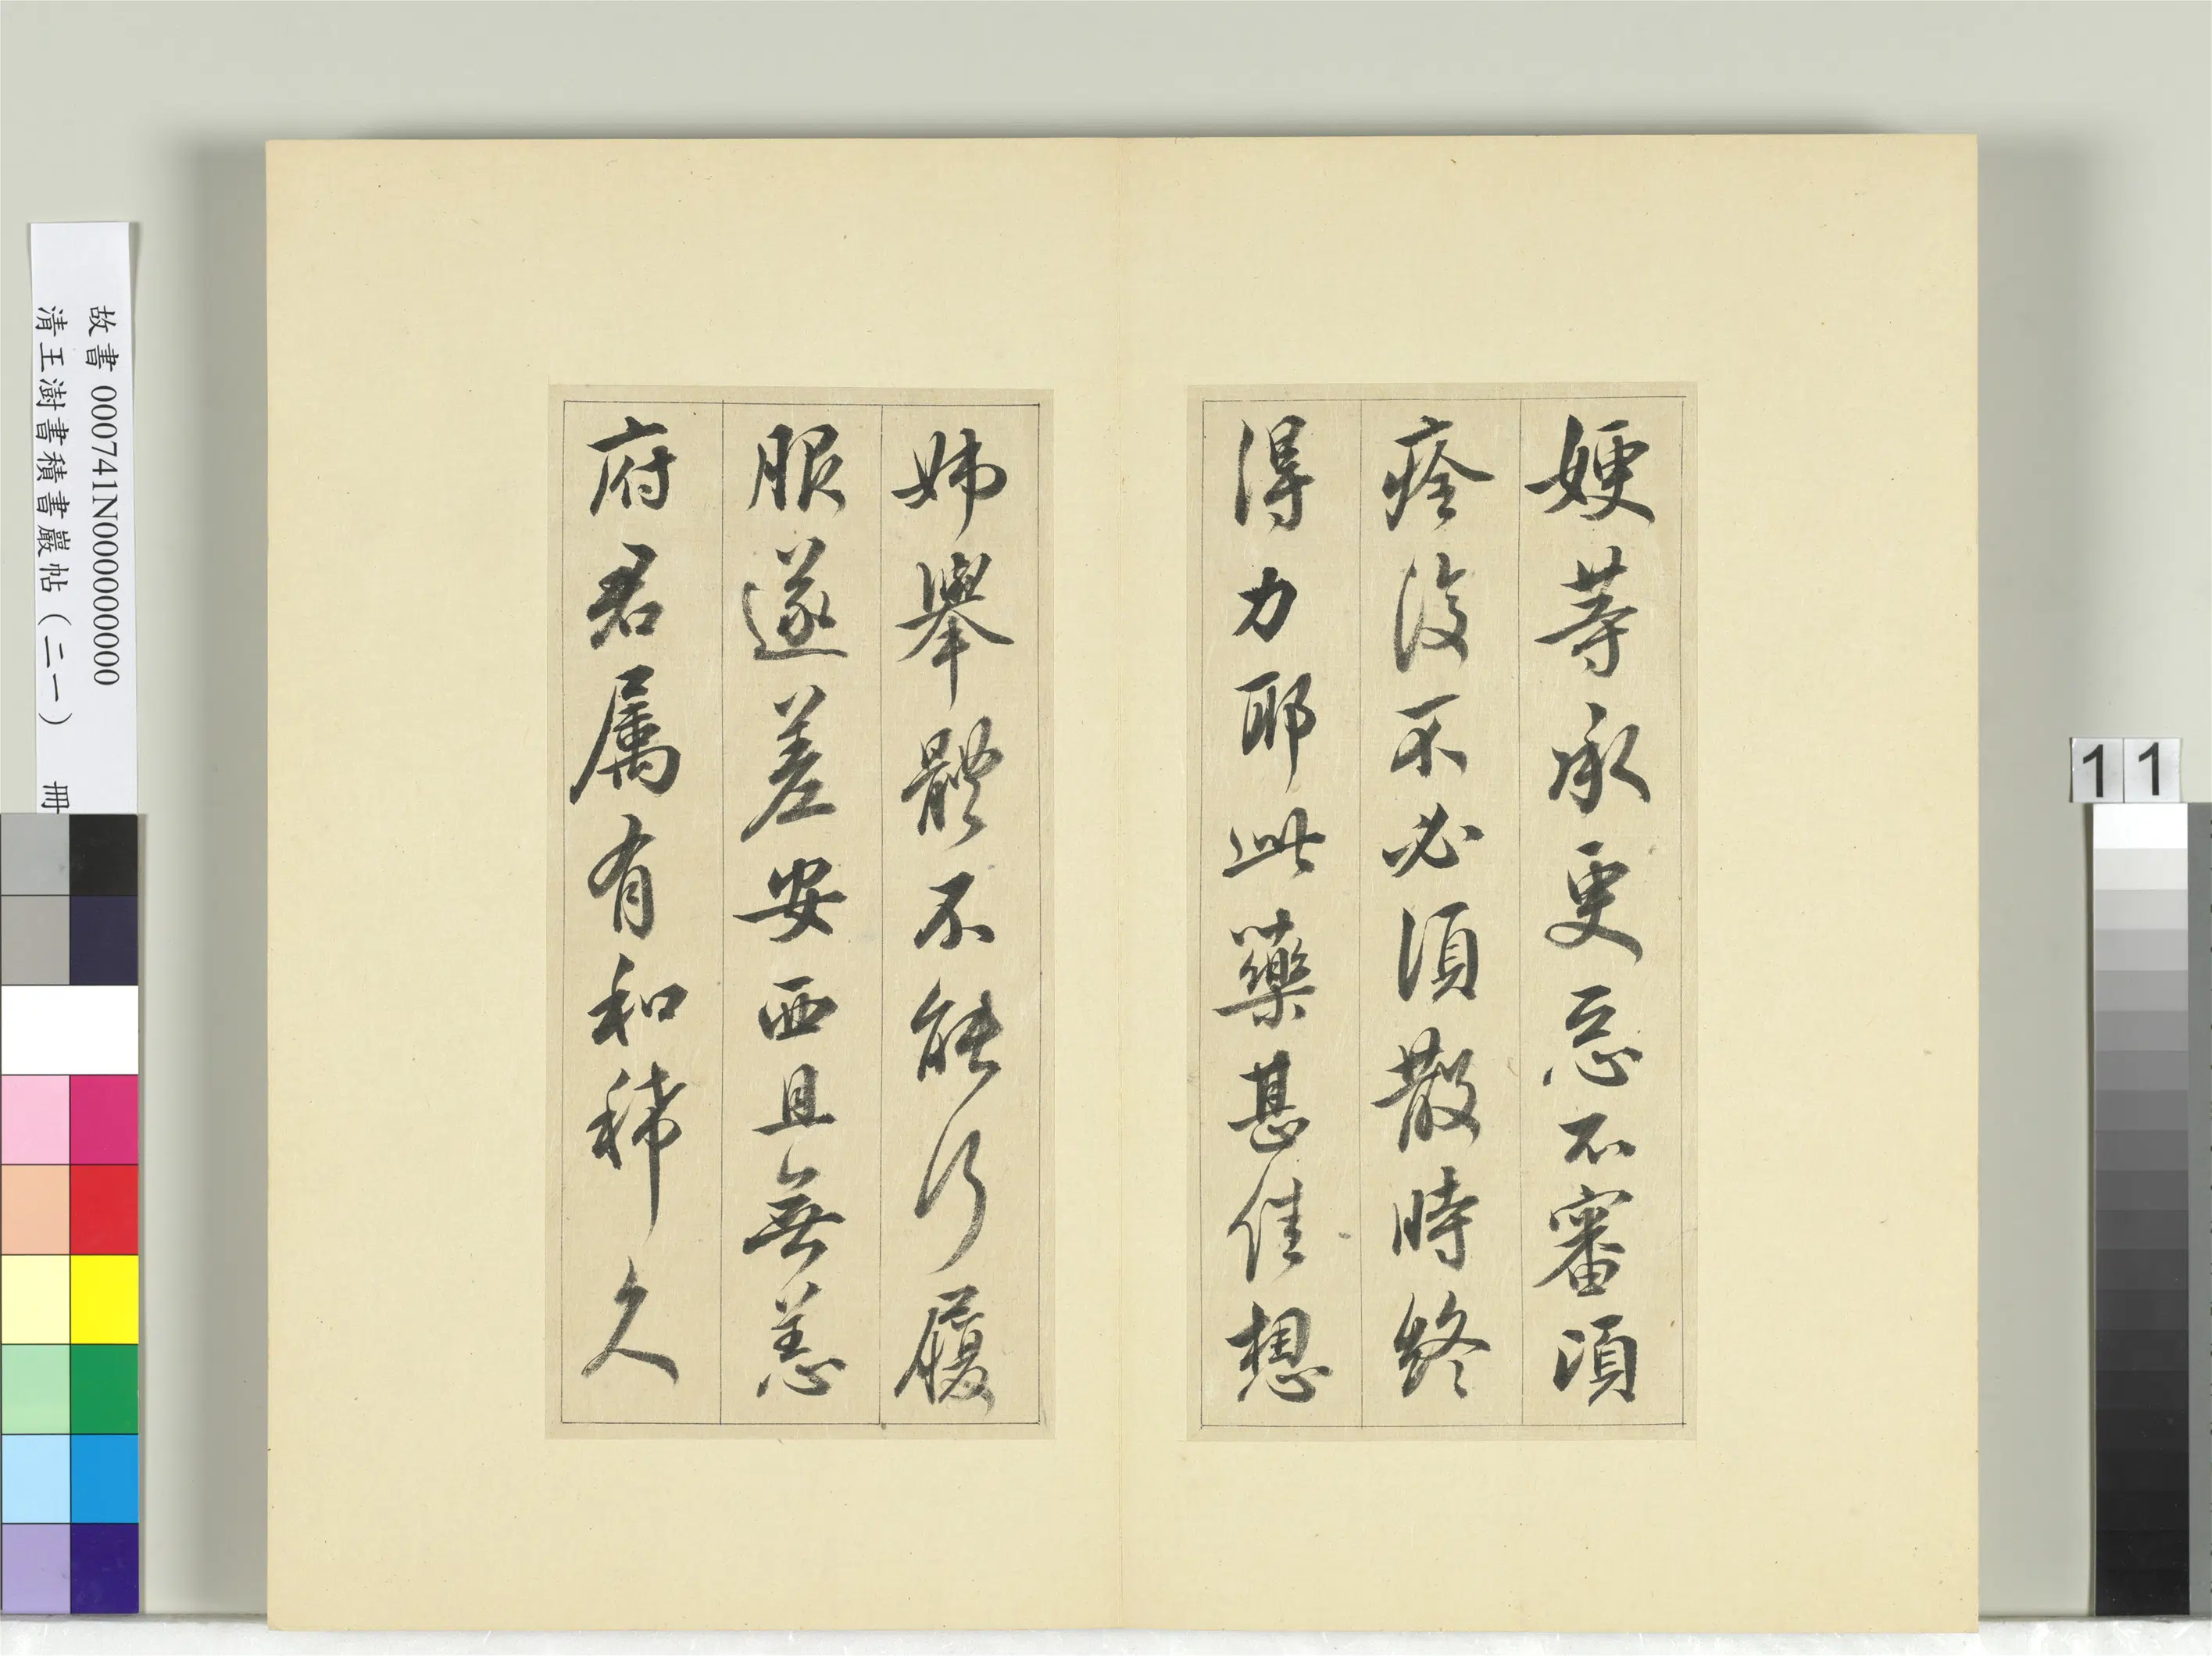 嫂等承更惡不審須
痊復不必須散時終
得力耶此藥甚佳想
姊舉體不能行履
服遂差安西且無恙
府君属有和稀久
故書 000741N000000000
清王澍書積書巖帖（二一） 冊
11